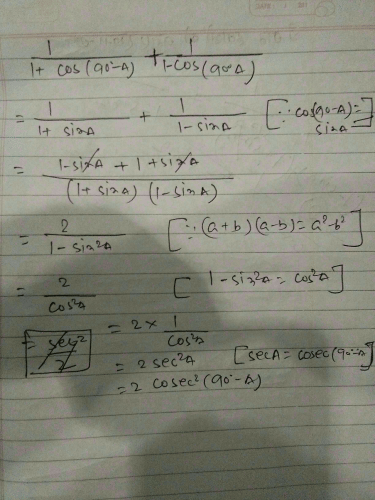 1/(1 + cos(90°-A)) + 1/(1-cos(90°-A))
= 1/(1 + sinA) + 1/(1 - sinA) [∵ cos(90-A) = sinA]
= (1-sinA + 1 + sinA)/((1 + sinA) (1-sinA))
= 2/(1 - sin²A) [∵ (a+b) (a-b) = a²-b²]
= 2/cos²A [1 - sin²A = cos²A]
= 2 × 1/cos²A
= 2 sec²A [secA = cosec(90°-A)]
= 2 cosec² (90°-A)